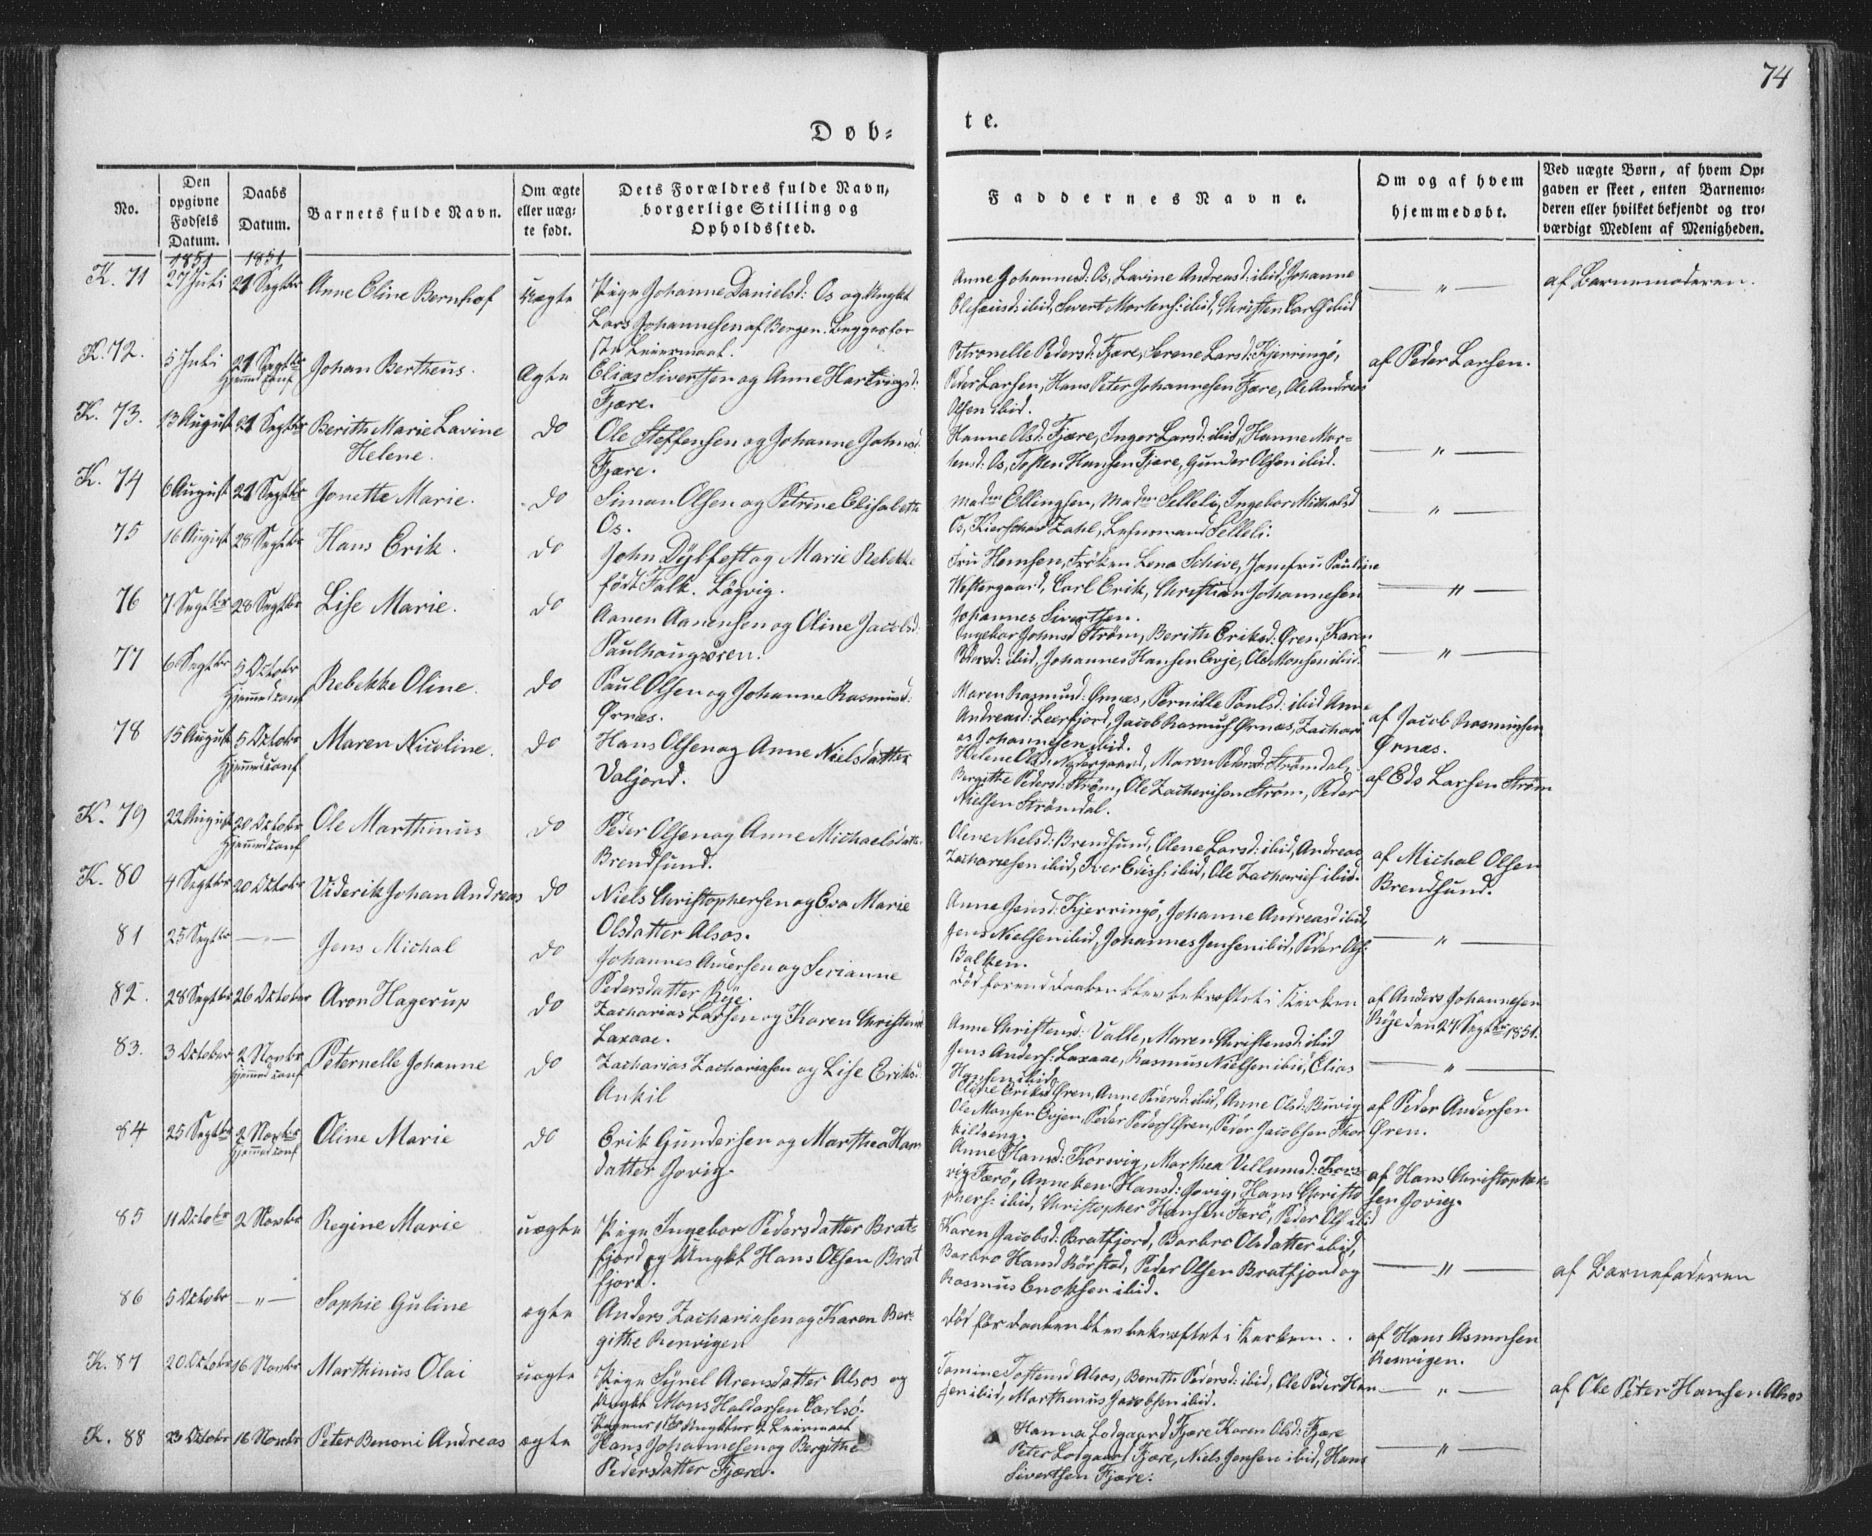 74
Døb-
te.
No.
Den opgivne Fødsels Datum.
Daabs Datum.
Barnets fulde Navn.
Om ægte eller uægte født.
Dets Forældres fulde Navn, borgerlige Stilling og Opholdssted.
Faddernes Navne.
Om og af hvem hjemmedøbt.
Ved uægte Børn, af hvem Opgaven er skeet, enten Barnemoderen eller hvilket bekjendt og troværdigt Medlem af Menigheden.
1851 1851
K. 71 27 Juli 21 Septbr Anne Eline Bernhof Uægte Pige Johanne Danielsd: Os og Ungkl
Lars Johannesen af Bergen. Begges første Leiermaal.
Anne Johannesd: Os, Lavine Andreasd: ibid, Johanne
ibid, Sivert Mortens: ibid, Christen Carls ibid
— " — af Barnemoderen.
K. 72. 5 Juli 21 Septbr Hjemmed. conf Johan Bertheus. Ægte Elias Sivertsen og Anne Hartvigsd:
Fjære.
Petronelle Pedersd: Fjære, Serene Larsd: Kjerringö,
Peder Larsen, Hans Peter Johannesen Fjære, Ole Andreas
Olsen ibid.
af Peder Larsen.
K. 73. 13 August 21 Septbr Berith Marie Lavine
Helene.
do Ole Steffensen og Johanne Johnsd:
Fjære.
Hanne Olsd: Fjære, Inger Larsd: ibid, Hanne Mortensd: Os, Tosten Hansen Fjære, Gunder Olsen ibid.
— " —
K. 74 6 August 21 Septbr Jonette Marie. do Simon Olsen og Petrine Elisabeth
Os.
Madm Ellingsen, Madm Sellelie, Ingebor Michalsd
Os, Zahl, Lehnsmand Sellelie.
— " —
75 16 August 28 Septbr Hans Erik. do John Dybfest og Marie Rebekke
født Falk. Løgvig.
Fru Hemsen, Frøken Lena Schive, Jomfru Pauline
Westergaard, Carl Erik, Christian Johannesen
Johannes Sivertsen.
— " —
76 7 Septbr 28 Septbr Lise Marie. do Aanen Aanensen og Oline Jacobsd:
Paulhaugsøren.
Ingebor Johnsd Strøm, Berith Eriksd: Øren, Karen
ibid, Johannes Hansen Evje, Ole Monsen ibid
— " —
77 6 Septbr 5 Octobr Hjemmed. conf Rebekke Oline. do Paul Olsen og Johanne Rasmusd:
Ørnæs.
Maren Rasmusd: Ørnæs, Pernille Paulsd: ibid Anne
Andreasd: Leerfjord, Jacob Rasmus Ørnæs, Zacharias Johannesen ibid.
af Jacob Rasmussen
Ørnæs.
78 15 August 5 Octobr Hjemmed. conf Maren Nicoline. do Hans Olsen og Anne Nielsdatter
Valjord.
Helene Olsd: Nedergaard, Maren Pedersd: Strømdal,
Bergithe Pedersd: Strøm, Ole Zachariesen Strøm, Peder
Nielsen Strømdal.
af Eds Larsen Strøm
K. 79 22 August 20 Octobr Hjemmed. conf Ole Marthinus do Peder Olsen og Anne Michaelsdatter
Brendsund.
Olene Nielsd: Brendsund, Olene Larsd: ibid, Andreas
Zachariesen ibid, Iver Ediss: ibid, Ole Zacharies ibid.
af Michal Olsen
Brendsund.
K. 80 4 Septbr 20 Octobr Viderik Johan Andreas do Niels Christophersen og Eva Marie
Olsdatter Alsos.
Anne Jensd: Kjerringö, Johanne Andreasd ibid,
Jens Nielsen ibid, Johannes Jensen ibid, Peder Ols:
Balken.
— " —
81 25 Septbr — " — Jens Michal do Johannes Andersen og Serianne
Pedersdatter Røe.
død forend Daaben blev bekræftet i Kirken
af Anders Johannesen
Røe den 27 Septbr 1851.
82. 28 Septbr 26 October Aron Hagerup do Zacharias Larsen og Karen Christensd
Laxaae.
Anne Christensd: Valle, Maren Christensd: ibid
Jens Anders: Laxaae, Rasmus Nielsen ibid, Elias
Hansen ibid
— " —
83. 3 October 2 Novbr Hjemmed conf Peternelle Johanne do Zacharias Zachariasen og Lise Eriksd:
Ankil
Olene Eriksd Øren, Anne Pedersd: ibid, Anne Olsd: Buvig
Ole Monsen Evjen, Peder Peders Øren, Peder Jacobsen
af Peder Andersen
Øren.
84 25 Septbr 2 Novbr Hjemmed conf Oline Marie do Erik Gundersen og Marthea Hansdatter Govig.
Anne Hansd: Korsvig, Marthea Vellumsd: Korsvig Færø, Anneken Hansd: Govig, Hans Christophers: ibid, Christopher Hansen Færø, Peder Ols ibid
af Hans Christophersen Govig.
85 11 Octobr 2 Novbr Regine Marie uægte Pige Ingebor Pedersdatter Bratfjord og Ungkl Hans Olsen Bratfjord.
Karen Jacobsd: Bratfjord, Barbro Olsdatter ibid,
Barbro Hansd Børstad, Peder Olsen Bratfjord og
Rasmus Enoksen ibid.
— " — af Barnefaderen
86 5 Octobr — " — Sophie Guline ægte Anders Zachariasen og Karen Bergithe Renvigen
død før Daaben blev bekræftet i Kirken.
af Hans Asmusen
Renvigen.
K. 87 20 Octobr 16 Novbr Marthinus Olai uægte Pige Synel Arensdatter Alsos og
Ungkl Mons Haldorsen Carlsö.
Pigens 1ste Ungklens 2 Leiermaal
Tomine Tostensd Alsos, Berith Pedersd: ibid, Ole Peder Hansen ibid, Marthinus Jacobsen ibid.
— " — af Ole Peter Hansen Alsos
K. 88 23 Octobr 16 Novbr Peter Benoni Andreas ægte Hans Johannesen og Bergithe
Pedersdatter Fjære.
Hanna Lodgaard Fjære Karen Olsd: Fjære
Peter Lodgaard Fjære, Niels Jensen ibid, Hans
Sivertsen Fjære.
— " —